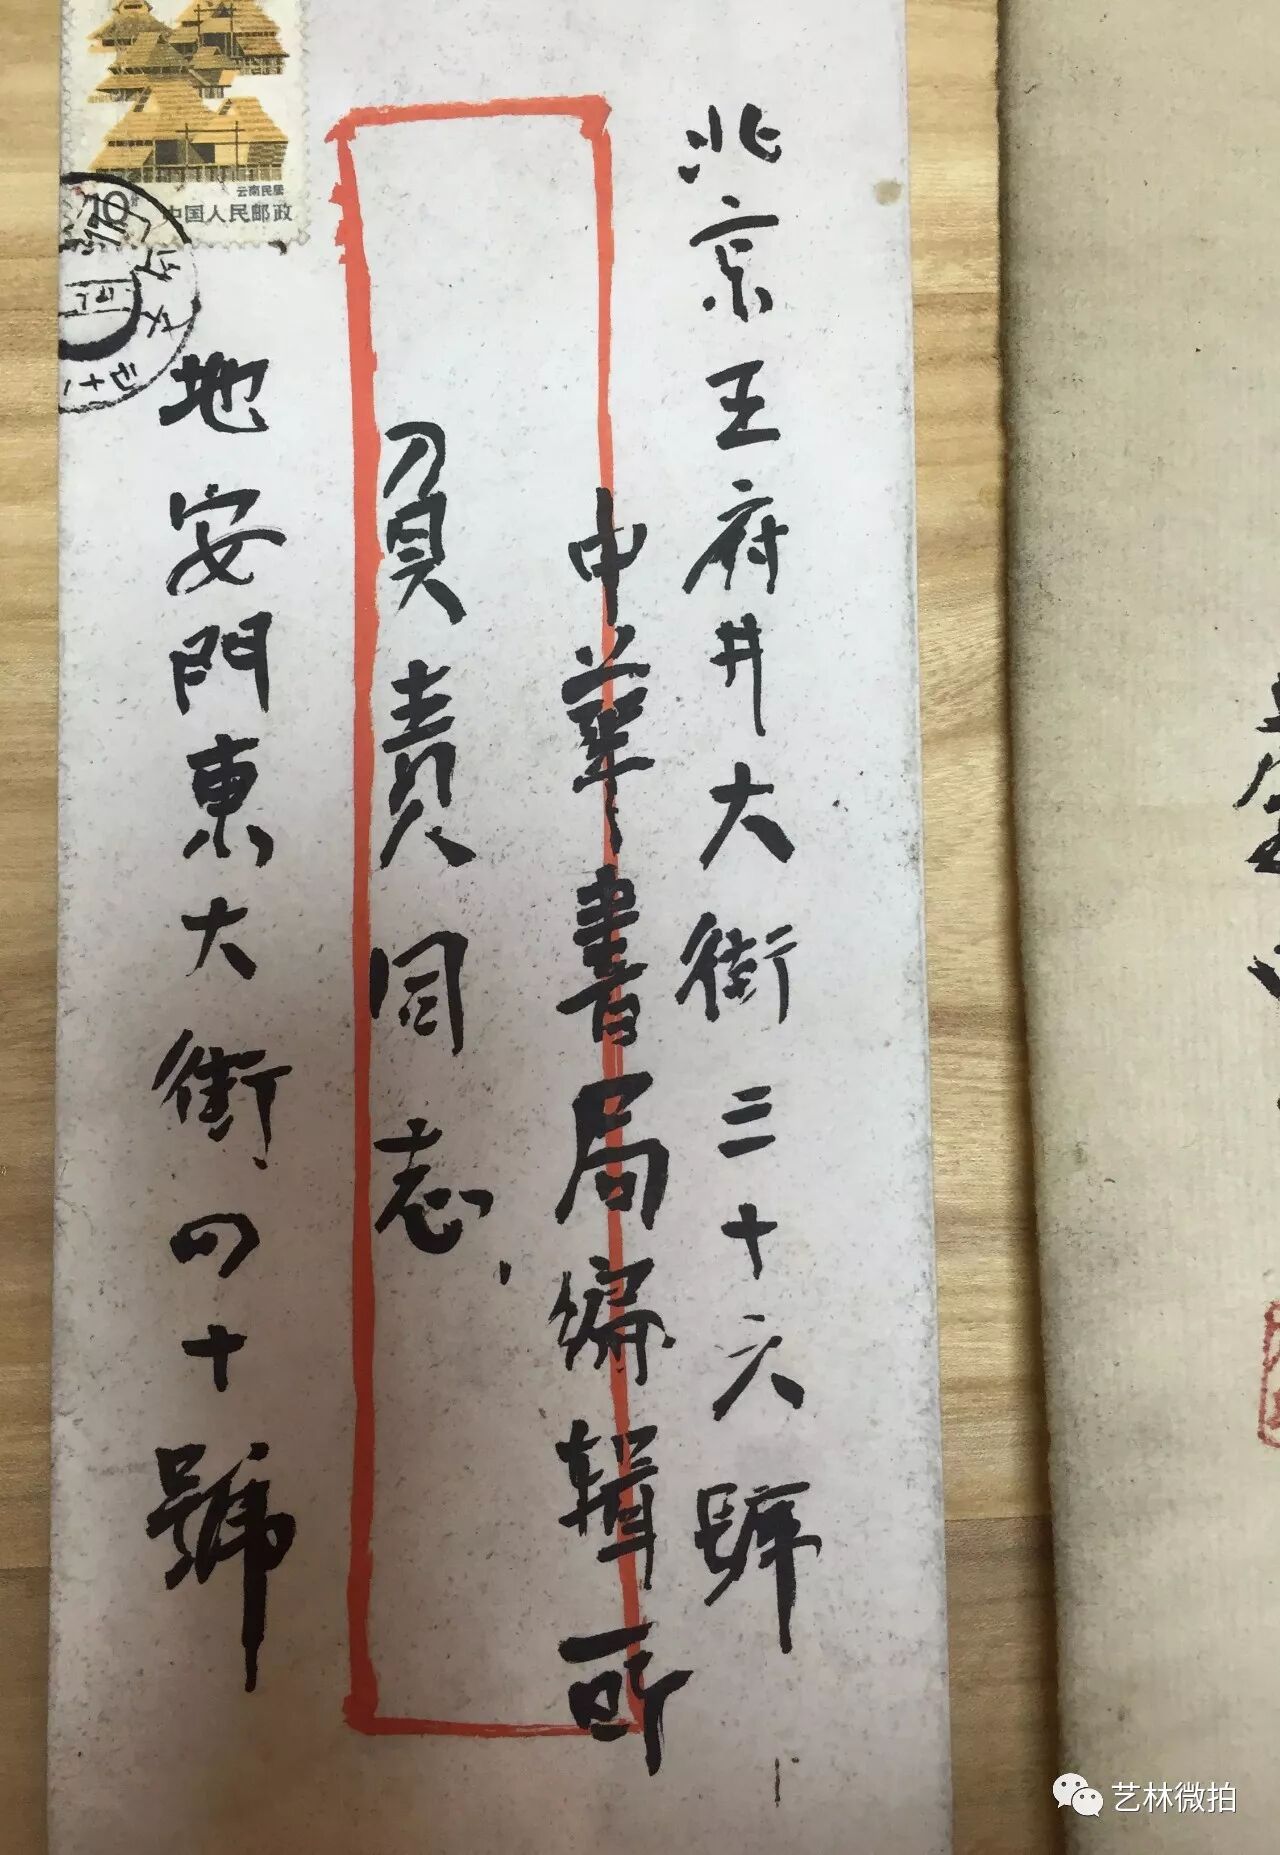 北京王府井大街三十六號
中華書局編輯所
負責同志
地安門東大街四十號
云南民居
10
中国人民邮政
艺林微拍